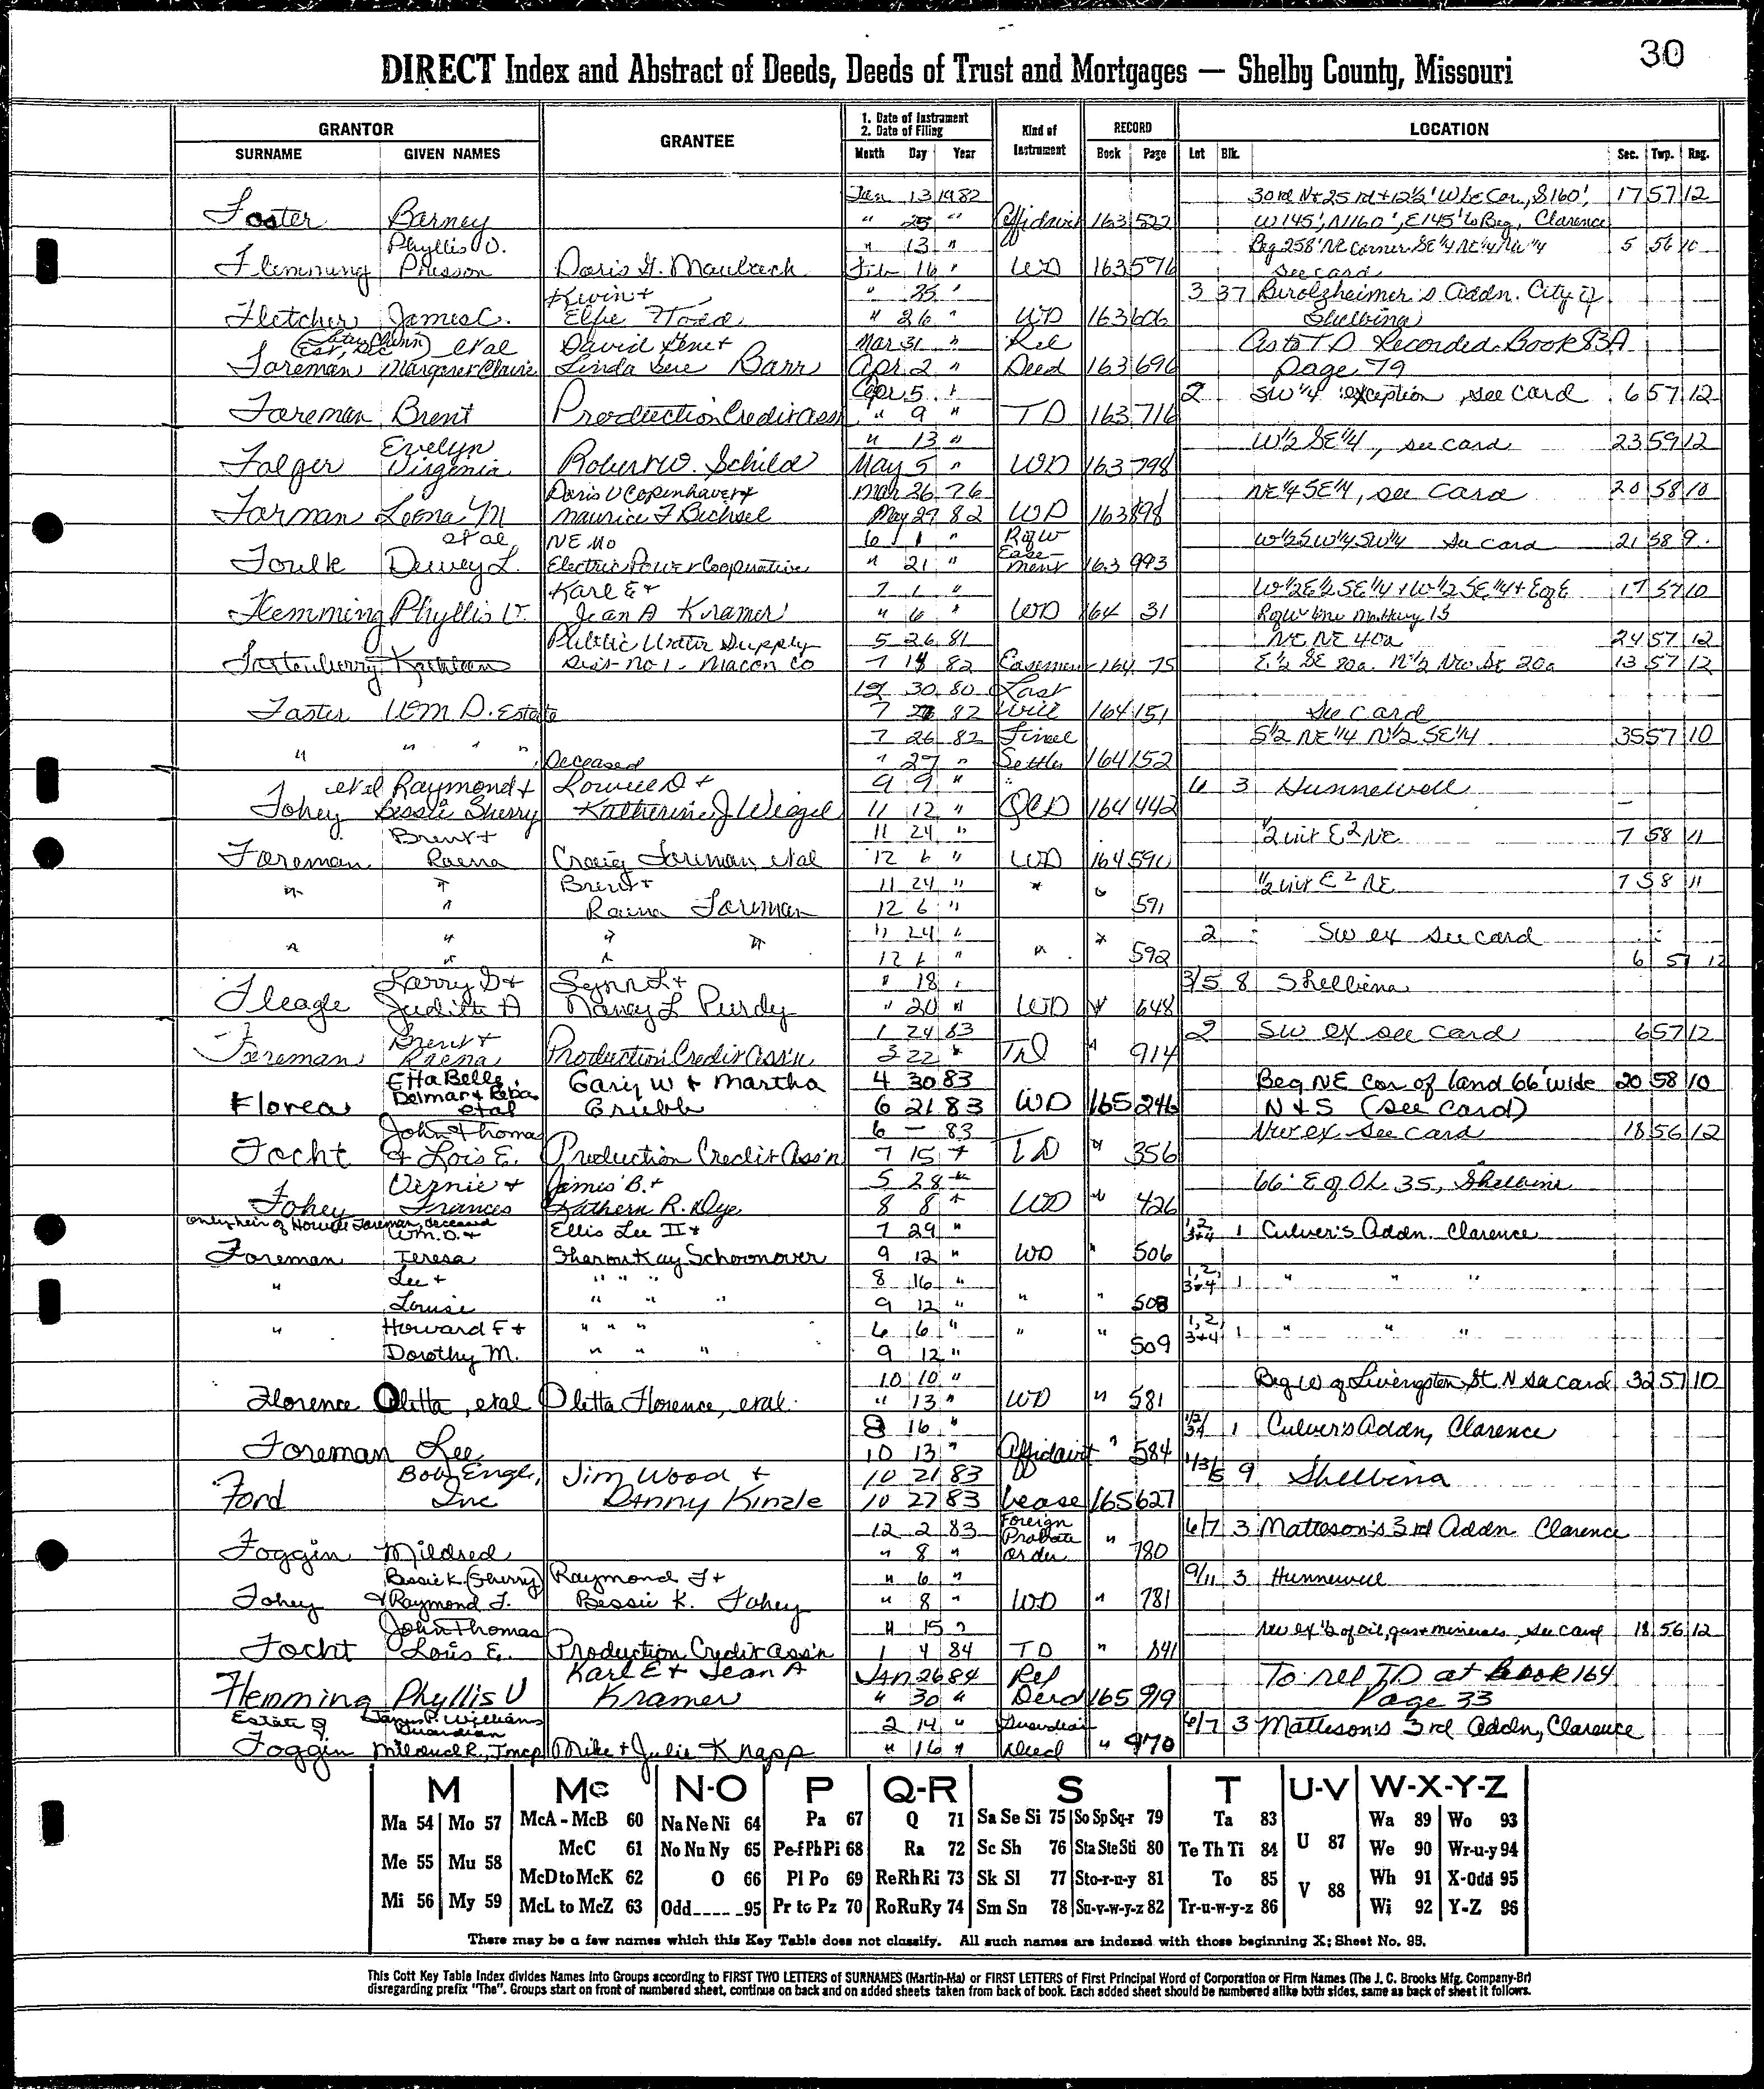 30
DIRECT Index and Abstract of Deeds, Deeds of Trust and Mortgages — Shelby County, Missouri
GRANTOR GRANTEE 1. Date of Instrument 2. Date of Filing Kind of Instrument RECORD LOCATION
SURNAME GIVEN NAMES Month Day Year Book Page Lot Blk. Sec. Twp. Rng.
Jan 13 1982 30 rd N & 25 rd + 12½' W Cor, S160', 17 57 12
Foster Barney " 25 " Affidavit 163 522 W145', N160', E145' to Beg, Clarence
Phyllis V. " 13 " Beg 258' NE Corner SE¼ NE¼ 5 56 10
Flemming Presson Doris G. Maubach Feb 16 " WD 163 576 see card
Kevin + " 25 " 3 37 Birolzheimer's Addn. City of
Fletcher James C. Elfie Todd " 26 " WD 163 606 Shelbina
etal David Gene + Mar 31 " Rel As to TD Recorded Book 83A
Foreman Margaret Claire Linda Sue Barr Apr 2 " Deed 163 696 Page 79
Apr 5 " 2 SW¼ exception, see card 6 57 12
Foreman Brent Production Credit Assn " 9 " TD 163 716
Evelyn " 13 " W½ SE¼, see card 23 59 12
Folger Virginia Robert W. Schild May 5 " WD 163 798
Doris V Copenhaver + Mar 26 76 NE¼ SE¼, see card 20 58 10
Forman Leona M Maurice F Bichsel May 27 82 WD 163 898
etal NE Mo 6 1 " R of W W½ SW¼ SW¼ see card 21 58 9
Foulk Dewey L. Electric Power Cooperative " 21 " Easement 163 993
Karl E + 7 1 " W½ E½ SE¼ + W½ SE¼ + E of E 17 57 10
Flemming Phyllis V. Jean A Kramer " 6 " WD 164 31 R of W line of Hwy 15
Public Water Supply 5 26 81 NE NE 40a 24 57 12
Fortenberry Kathleen Dist. no 1 - Macon Co 7 19 82 Easement 164 75 E½ SE 80a. N½ NW SE 20a 13 57 12
12 30 80 Last
Foster WM D. Estate 7 82 Will 164 151 see card
7 26 82 Final S½ NE¼ N½ SE¼ 35 57 10
" " " " Deceased " 27 " Settle 164 152
etal Raymond + Lowell D + 9 9 " 6 3 Hunnewell
Fohey Bessie Sherry Katherine J Weigel 11 12 " QCD 164 442
Brent + 11 24 " ½ int E² NE 7 58 11
Foreman Raena Craig Foreman etal 12 6 " WD 164 590
" " Brent + 11 24 " " " ½ int E² NE 7 58 11
" Raena Foreman 12 6 " 591
" " " " 11 24 " " " 2 SW ex see card
" " 12 6 " 592 6 57 12
Larry D + Lynn L + " 18 " 3/5 8 Shelbina
Fleagle Judith A Nancy L Purdy " 20 " WD " 648
Brent + 1 24 83 2 SW ex see card 6 57 12
Foreman Raena Production Credit Ass'n 3 22 " TD " 914
Etta Belle, Gary W + Martha 4 30 83 Beg NE Cor of land 66' wide 20 58 10
Florea Delmar + Reba etal Grubb 6 21 83 WD 165 246 N & S (see card)
John Thomas 6 — 83 NW ex see card 18 56 12
Focht & Lois E. Production Credit Ass'n 7 15 " TD " 356
Vernie + James B. + 5 28 " 66' E of OL 35, Shelbina
Fohey Frances Kathern R. Dye 8 8 " WD " 426
only heir of Howell Foreman, deceased WM. D. + Ellis Lee II + 7 29 " 1,2 3+4 1 Culver's Addn. Clarence
Foreman Teresa Sharon Kay Schoonover 9 12 " WD " 506
" Lee + " " " 8 16 " 1,2, 3+4 1 " " "
Louise " " " 9 12 " " " 508
" Howard F + " " " 6 6 " " " 1,2, 3+4 1 " " "
Dorothy M. " " " 9 12 " 509
10 10 " Beg W of Livingston St N see card 32 57 10
Florence Oletta, etal Oletta Florence, etal. " 13 " WD " 581
8 16 " 1/2/ 3/4 1 Culver's Addn, Clarence
Foreman Lee 10 13 " Affidavit " 584
Bob Engle, Jim Wood + 10 21 83 1/3/5 9 Shelbina
Ford Inc Danny Kinzle 10 27 83 Lease 165 627
12 2 83 Foreign Probate 6/7 3 Matteson's 3rd Addn Clarence
Foggin Mildred " 8 " Order " 780
Bessie K. (Sherry) Raymond J + " 6 " 9/11 3 Hunnewell
Fohey & Raymond J. Bessie K. Fohey " 8 " WD " 781
John Thomas " 15 " NW ex ½ of oil, gas + minerals, see card 18 56 12
Focht Lois E. Production Credit Ass'n 1 4 84 TD " 841
Karl E + Jean A Jan 26 84 Rel To rel TD at book 164
Flemming Phyllis V Kramer " 30 " Deed 165 919 Page 33
Estate of James P. Williams Guardian 2 14 " Guardian 6/7 3 Matteson's 3rd Addn, Clarence
Foggin Mildred R., Incp Mike + Julie Knapp " 16 " Deed " 970
M Mc N-O P Q-R S T U-V W-X-Y-Z
Ma 54 Mo 57 McA - McB 60 Na Ne Ni 64 Pa 67 Q 71 Sa Se Si 75 So Sp Sq-r 79 Ta 83 Wa 89 Wo 93
Me 55 Mu 58 McC 61 No Nu Ny 65 Pe-f Ph Pi 68 Ra 72 Sc Sh 76 Sta Ste Sti 80 Te Th Ti 84 U 87 We 90 Wr-u-y 94
McD to McK 62 O 66 Pl Po 69 Re Rh Ri 73 Sk Sl 77 Sto-r-u-y 81 To 85 V 88 Wh 91 X-Odd 95
Mi 56 My 59 McL to McZ 63 Odd ---- 95 Pr to Pz 70 Ro Ru Ry 74 Sm Sn 78 Su-v-w-y-z 82 Tr-u-w-y-z 86 Wi 92 Y-Z 96
There may be a few names which this Key Table does not classify. All such names are indexed with those beginning X; Sheet No. 95.
This Cott Key Table Index divides Names into Groups according to FIRST TWO LETTERS of SURNAMES (Martin-Ma) or FIRST LETTERS of First Principal Word of Corporation or Firm Names (The J. C. Brooks Mfg. Company-Br)
disregarding prefix "The". Groups start on front of numbered sheet, continue on back and on added sheets taken from back of book. Each added sheet should be numbered alike both sides, same as back of sheet it follows.